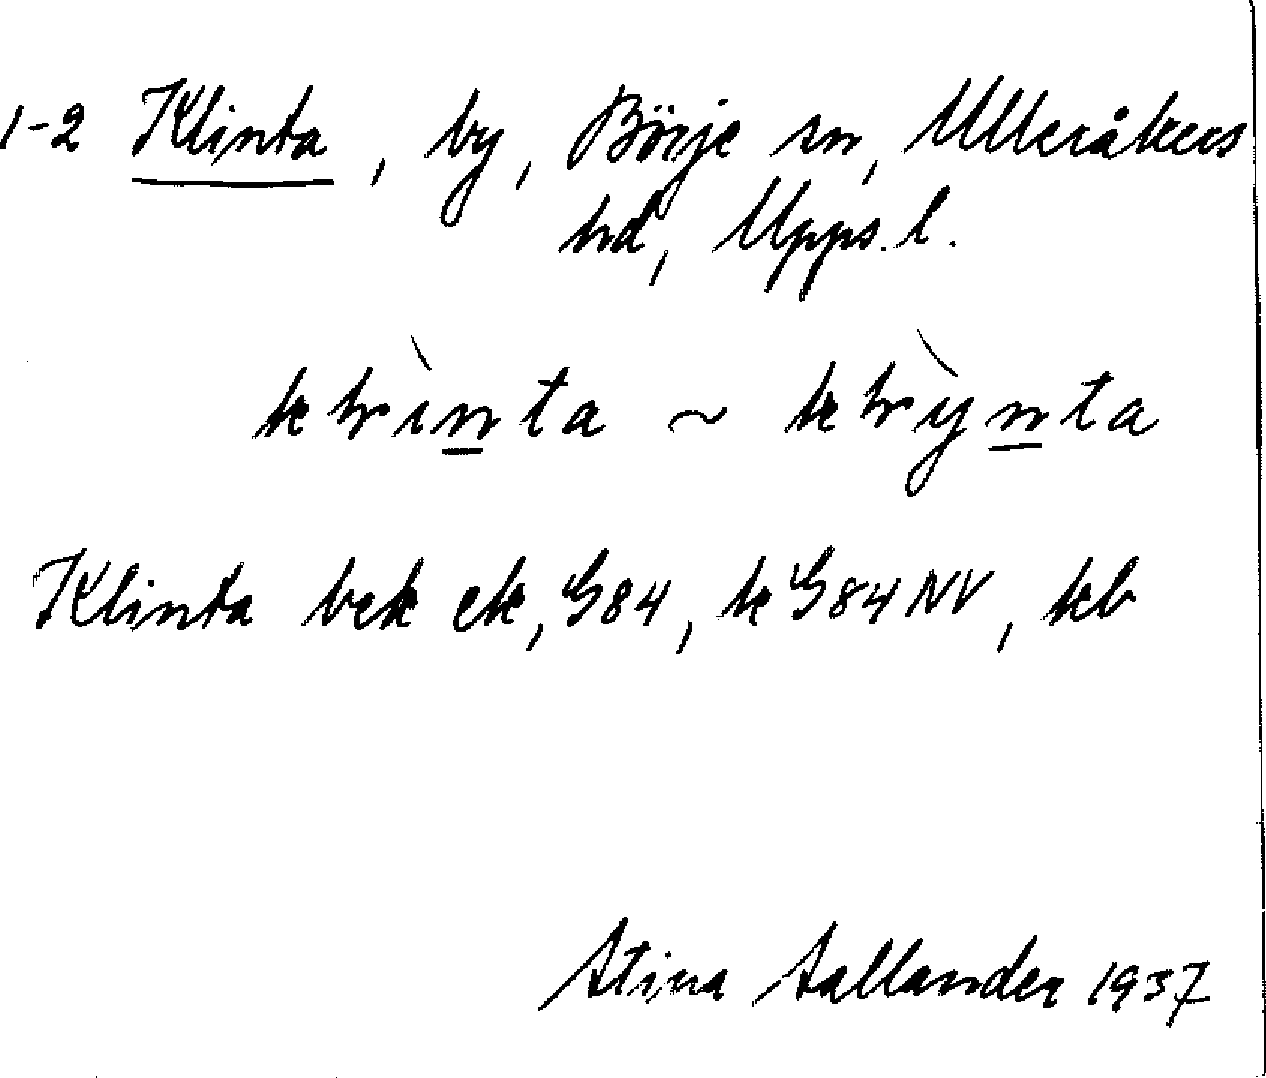 1-2 Klinta, by, Börje sn, Ulleråkers
hd, Upps. l.
Klinta bek ek, G84, k G84 NV, kb
Stina Sallander 1937